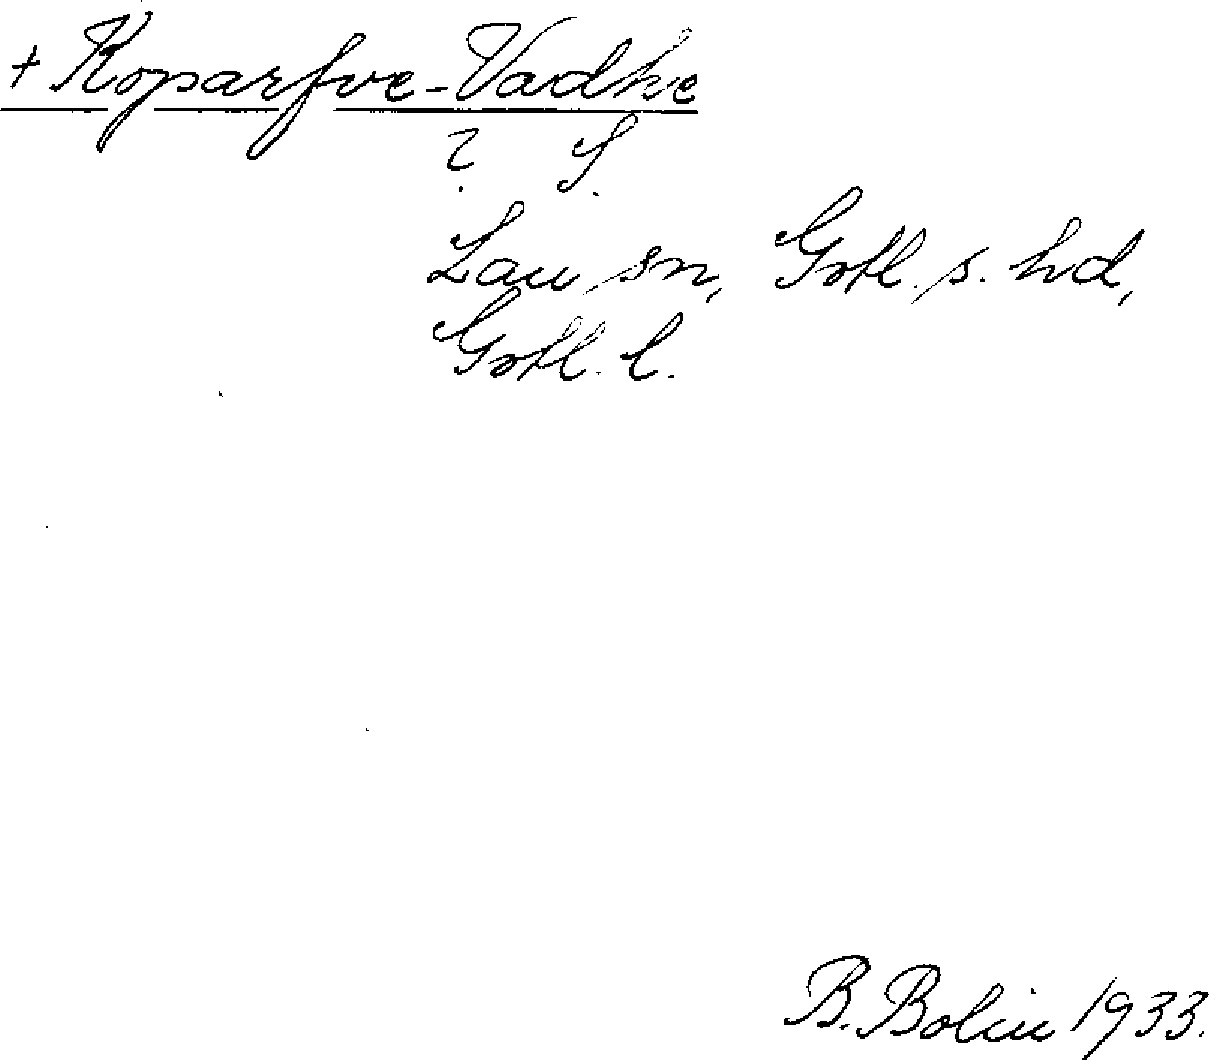 + Koparfve-Vadhve
? S.
Lau sn, Gotl. s. hd,
Gotl. l.
B. Bolin 1933.